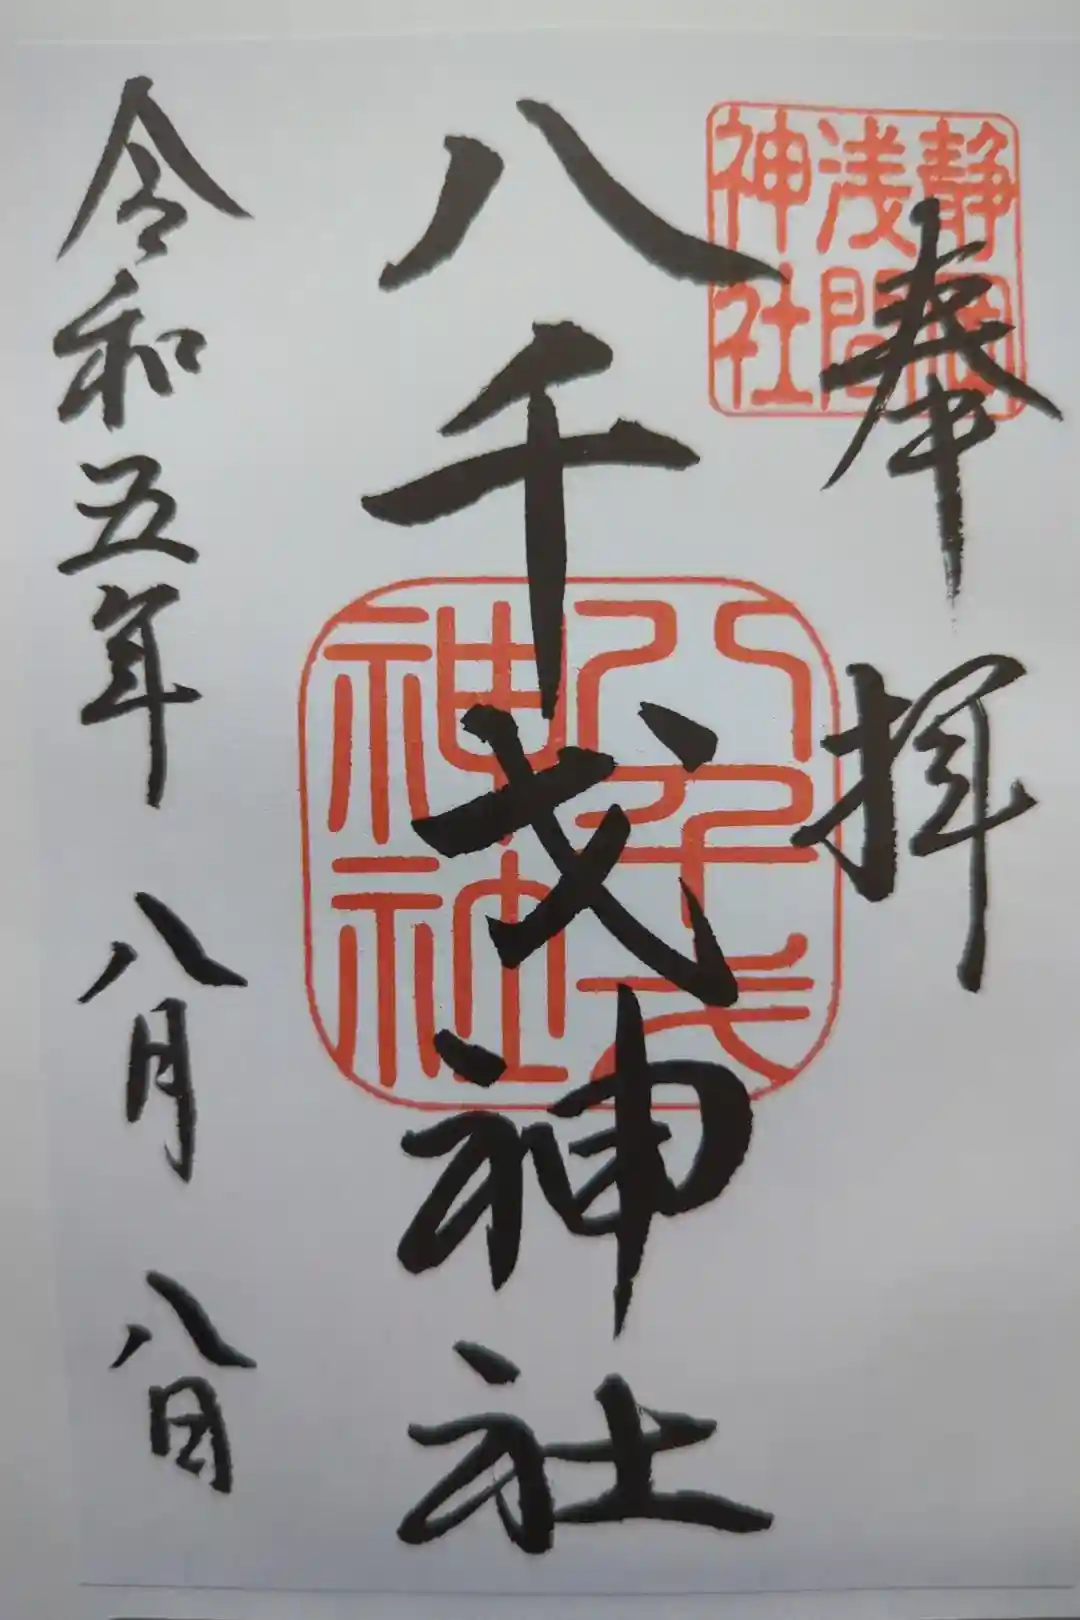 奉拝
静岡
浅間
神社
八千戈神社
八千戈
神社
令和五年 八月 八日